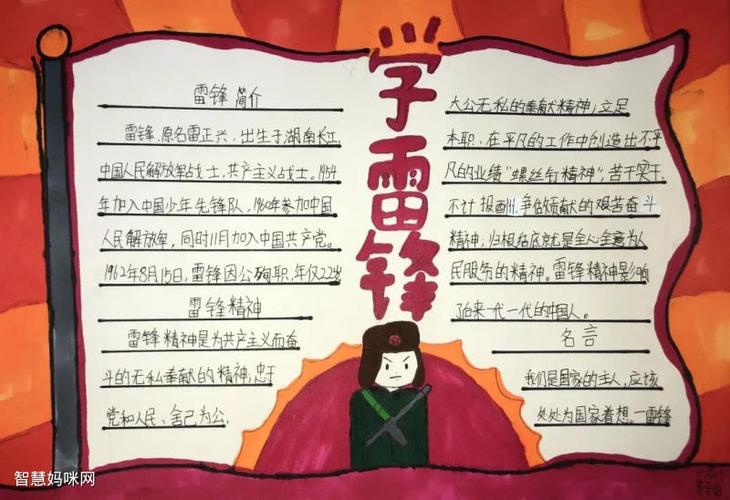 学雷锋
雷锋 简介
雷锋,原名雷正兴,出生于湖南长江,
中国人民解放军战士,共产主义战士。1954
年加入中国少年先锋队,1960年参加中国
人民解放军,同时11月加入中国共产党。
1962年8月15日,雷锋因公殉职,年仅22岁
雷锋精神
雷锋精神是为共产主义而奋
斗的无私奉献的精神,忠于
党和人民、舍己为公,
大公无私的奉献精神;立足
本职、在平凡的工作中创造出不平
凡的业绩“螺丝钉精神”;苦干实干、
不计报酬,争做贡献的艰苦奋斗
精神;归根结底就是全心全意为人
民服务的精神。雷锋精神影响
了后来一代一代的中国人。
名言
我们是国家的主人,应该
处处为国家着想。一雷锋
智慧妈咪网